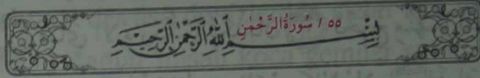 ٥٥ / سُورَةُ الرَّحْمٰنِ
بِسْمِ اللّٰهِ الرَّحْمٰنِ الرَّحِيْمِ